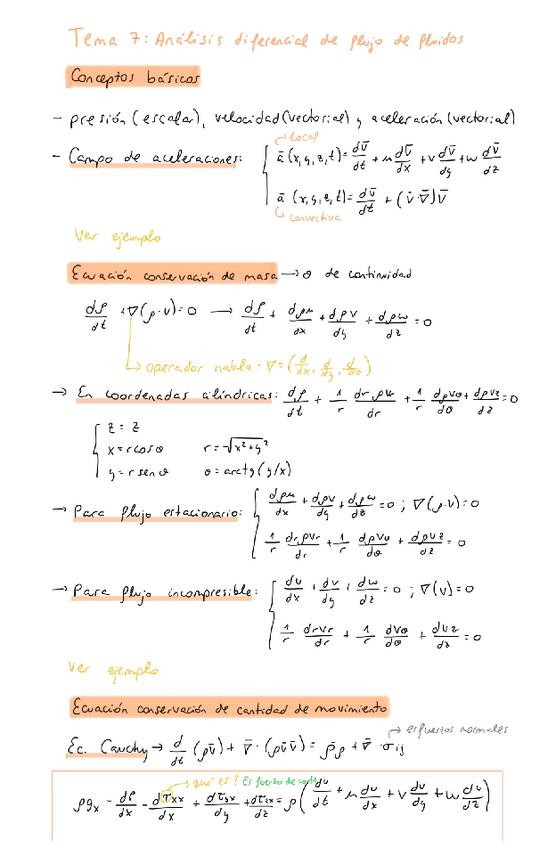 Tema 7: Análisis diferencial de flujo de fluidos
Conceptos básicos
- presión (escalar), velocidad (vectorial) y aceleración (vectorial)
→ local
- Campo de aceleraciones: { ā (x,y,z,t) = dv̄/dt + u dv̄/dx + v dv̄/dy + w dv̄/dz
ā (x,y,z,t) = dv̄/dt + (v̄·∇̄)v̄
↳ convectiva
Ver ejemplo
Ecuación conservación de masa → o de continuidad
dρ/dt + ∇(ρ·v) = 0 → dρ/dt + dρu/dx + dρv/dy + dρw/dz = 0
↳ operador nabla: ∇ = (d/dx, d/dy, d/dz)
→ En coordenadas cilíndricas: dρ/dt + 1/r drρvr/dr + 1/r dρvθ/dθ + dρvz/dz = 0
{ z = z
x = r cos θ r = √x²+y²
y = r sen θ θ = arctg (y/x)
→ Para flujo estacionario: { dρu/dx + dρv/dy + dρw/dz = 0 ; ∇(ρ·v) = 0
1/r drρvr/dr + 1/r dρvθ/dθ + dρvz/dz = 0
→ Para flujo incompresible: { du/dx + dv/dy + dw/dz = 0 ; ∇(v) = 0
1/r drvr/dr + 1/r dvθ/dθ + dvz/dz = 0
Ver ejemplo
Ecuación conservación de cantidad de movimiento
→ esfuerzos normales
Ec. Cauchy → d/dt (ρv̄) + ∇̄·(ρv̄v̄) = ρ̄ρ + ∇̄·σij
→ qué es? Esfuerzo de corte
ρgx - dP/dx - dτxx/dx + dτyx/dy + dτzx/dz = ρ(du/dt + u du/dx + v du/dy + w du/dz)